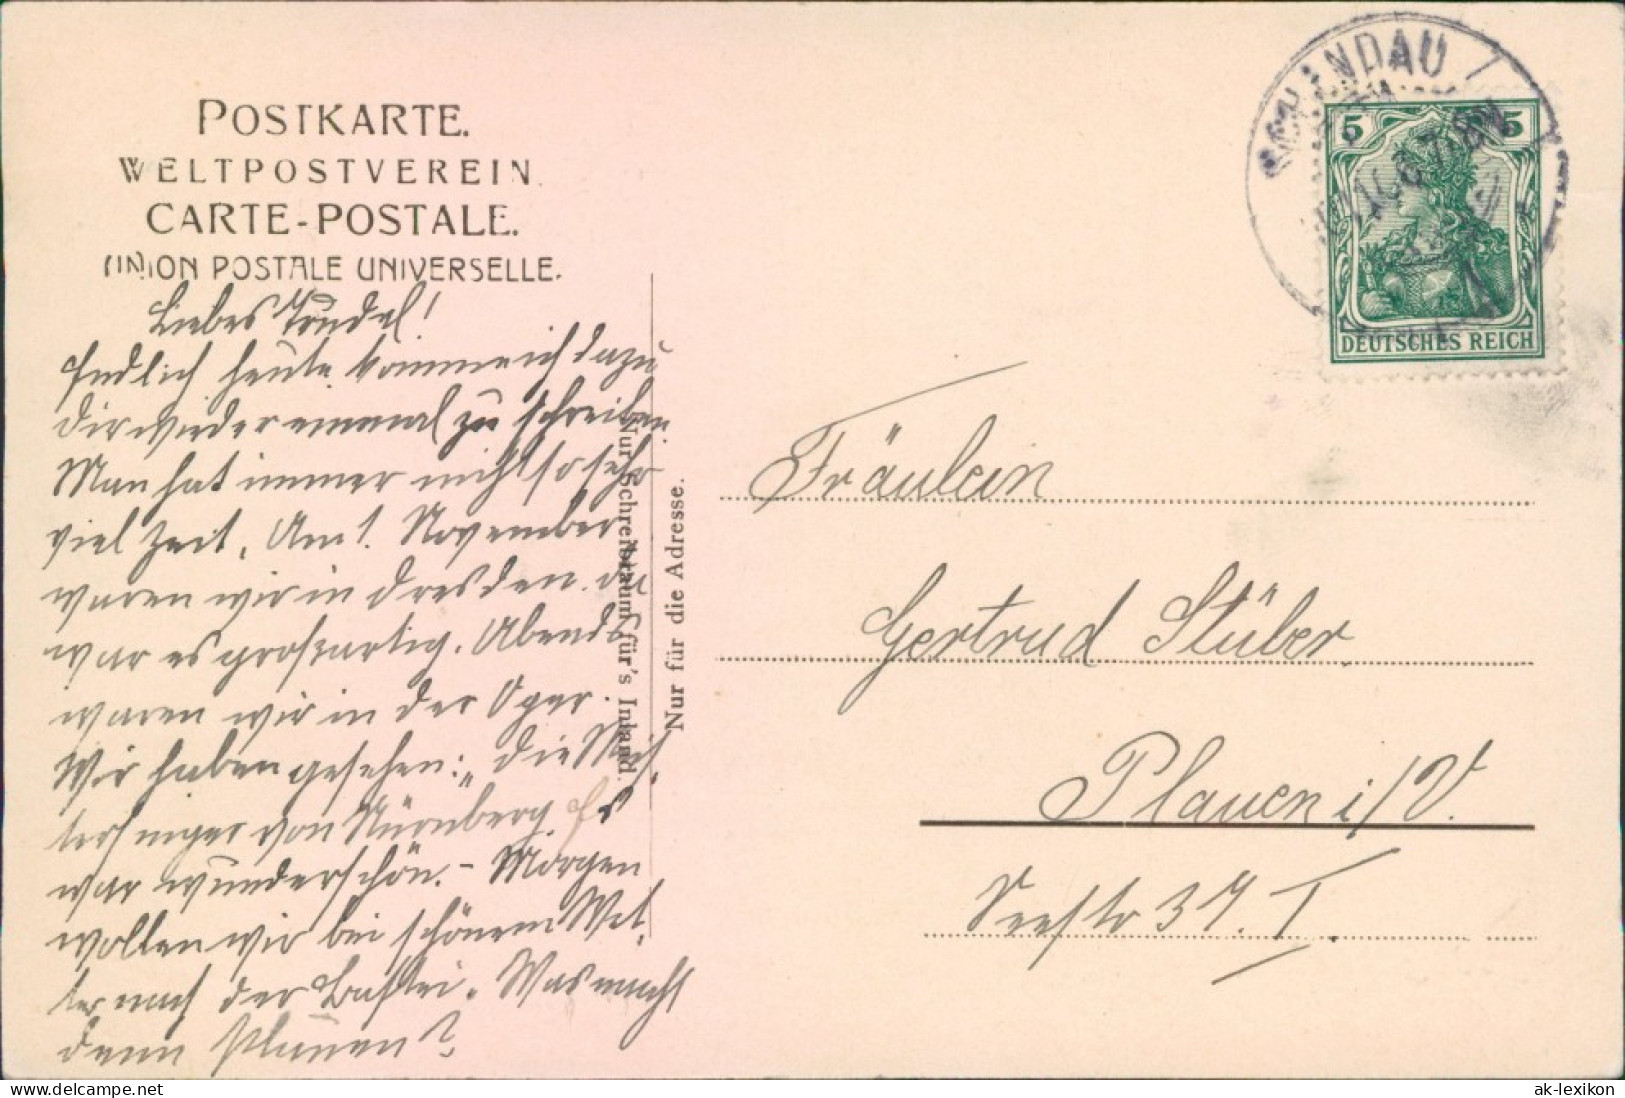 POSTKARTE.
WELTPOSTVEREIN.
CARTE-POSTALE.
UNION POSTALE UNIVERSELLE.
Liebes Trudel!
Endlich heute komme ich dazu
dir wieder einmal zu schreiben
Man hat immer nicht so sehr
viel Zeit. Am 1. November
waren wir in Dresden. da
war es großartig. Abends
waren wir in der Oper.
Wir haben gesehen: „Die Meis
tersinger von Nürnberg. Es
war wunderschön. - Morgen
wollen wir bei schönem Wet
ter nach der Bastei. Was macht
denn Plauen?
Nur Schreibraum für's Inland.
Nur für die Adresse.
SCHANDAU
5 5
DEUTSCHES REICH
Fräulein
Gertrud Stüber.
Plauen i/V.
Seestr 37. I.
www.delcampe.net
ak-lexikon